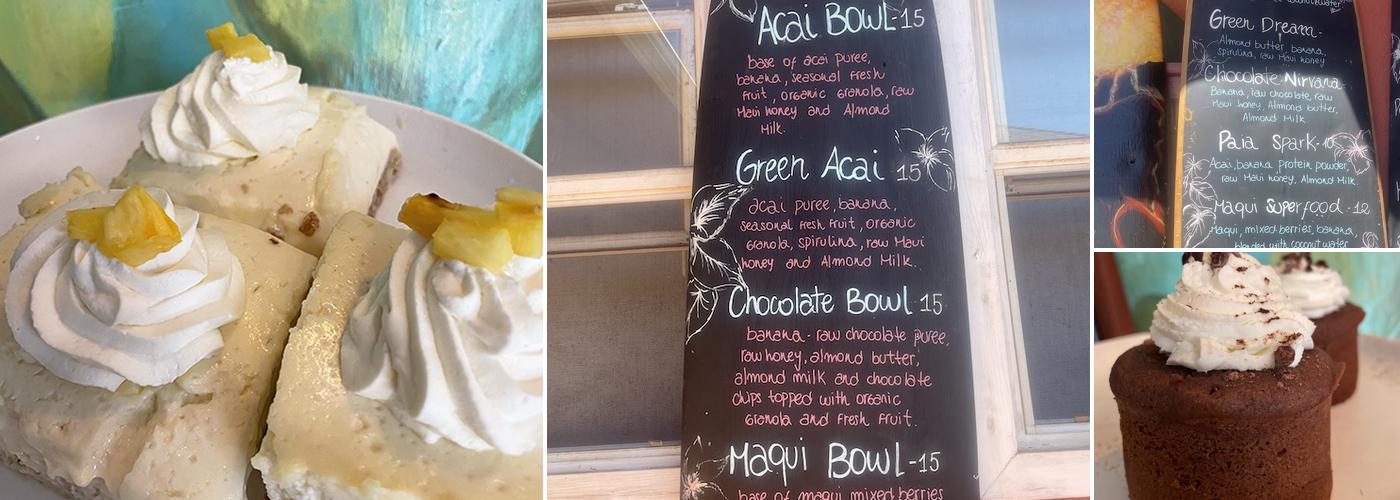 Acai Bowl-15
base of acai puree,
banana, seasonal fresh
fruit, organic granola, raw
Maui honey and Almond
Milk.
Green Acai 15
acai puree, banana,
seasonal fresh fruit, organic
Granola, spirulina, raw Maui
honey and Almond Milk.
Chocolate Bowl 15
banana - raw chocolate puree,
raw honey, almond butter,
almond milk and chocolate
chips topped with organic
Granola and fresh fruit.
Maqui Bowl-15
base of maqui mixed berries
Green Dream-
Almond butter, banana,
spirulina, raw Maui honey
Chocolate Nirvana
Banana, raw chocolate, raw
Maui honey, Almond butter,
Almond Milk.
Paia Spark-10
Acai, banana protein powder,
raw Maui honey, Almond Milk.
Maqui Superfood-12
Maqui, mixed berries, banana,
blended with coconut water